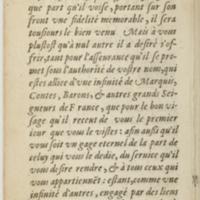 que part qu'il voise, portant sur son
front vne fidelité memorable, il sera
tousiours le bien venu Mais à vous
plustost qu'à nul autre il a desiré s'of-
frir, tant pour l'asseurance qu'il se pro-
met sous l'authorité de vostre nom, qui
est alliee d'vne infinité de Marquis,
Contes, Barons, & autres grands Sei-
gneurs de France, que pour le bon vi-
sage qu'il receut de vous le premier
iour que vous le vistes: afin aussi qu'il
vous soit vn gage eternel de la part de
celuy qui vous le dedie, du seruice qu'il
vous desire rendre, & à tous ceux qui
vous appartiennēt: estant, comme vne
infinité d'autres, engagé par des liens